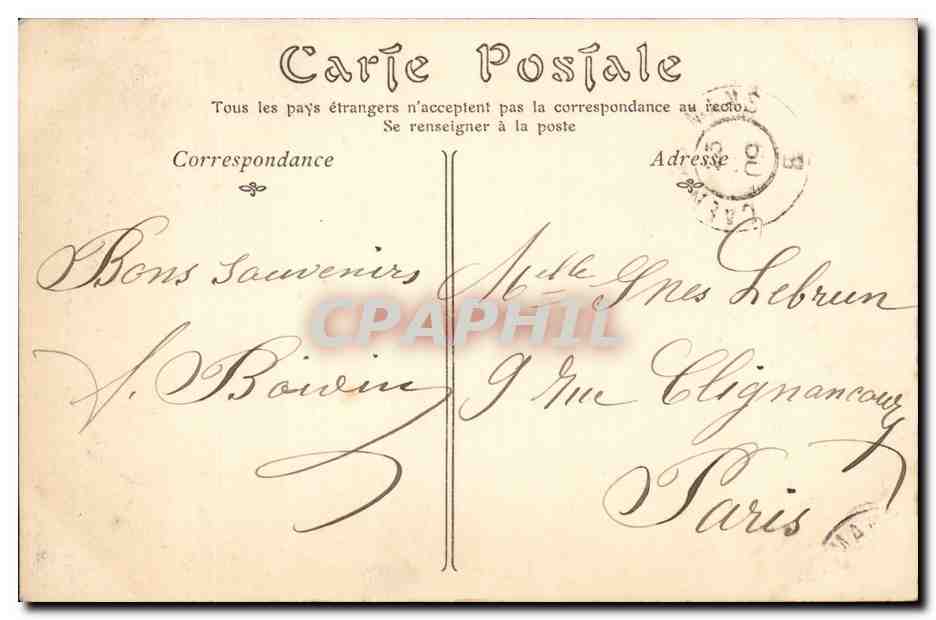 Carte Postale
Tous les pays étrangers n'acceptent pas la correspondance au recto.
Se renseigner à la poste
Correspondance
Adresse
Bons souvenirs
Boivin
Melle Ines Lebrun
9 rue Clignancourt
Paris
CPAPHIL